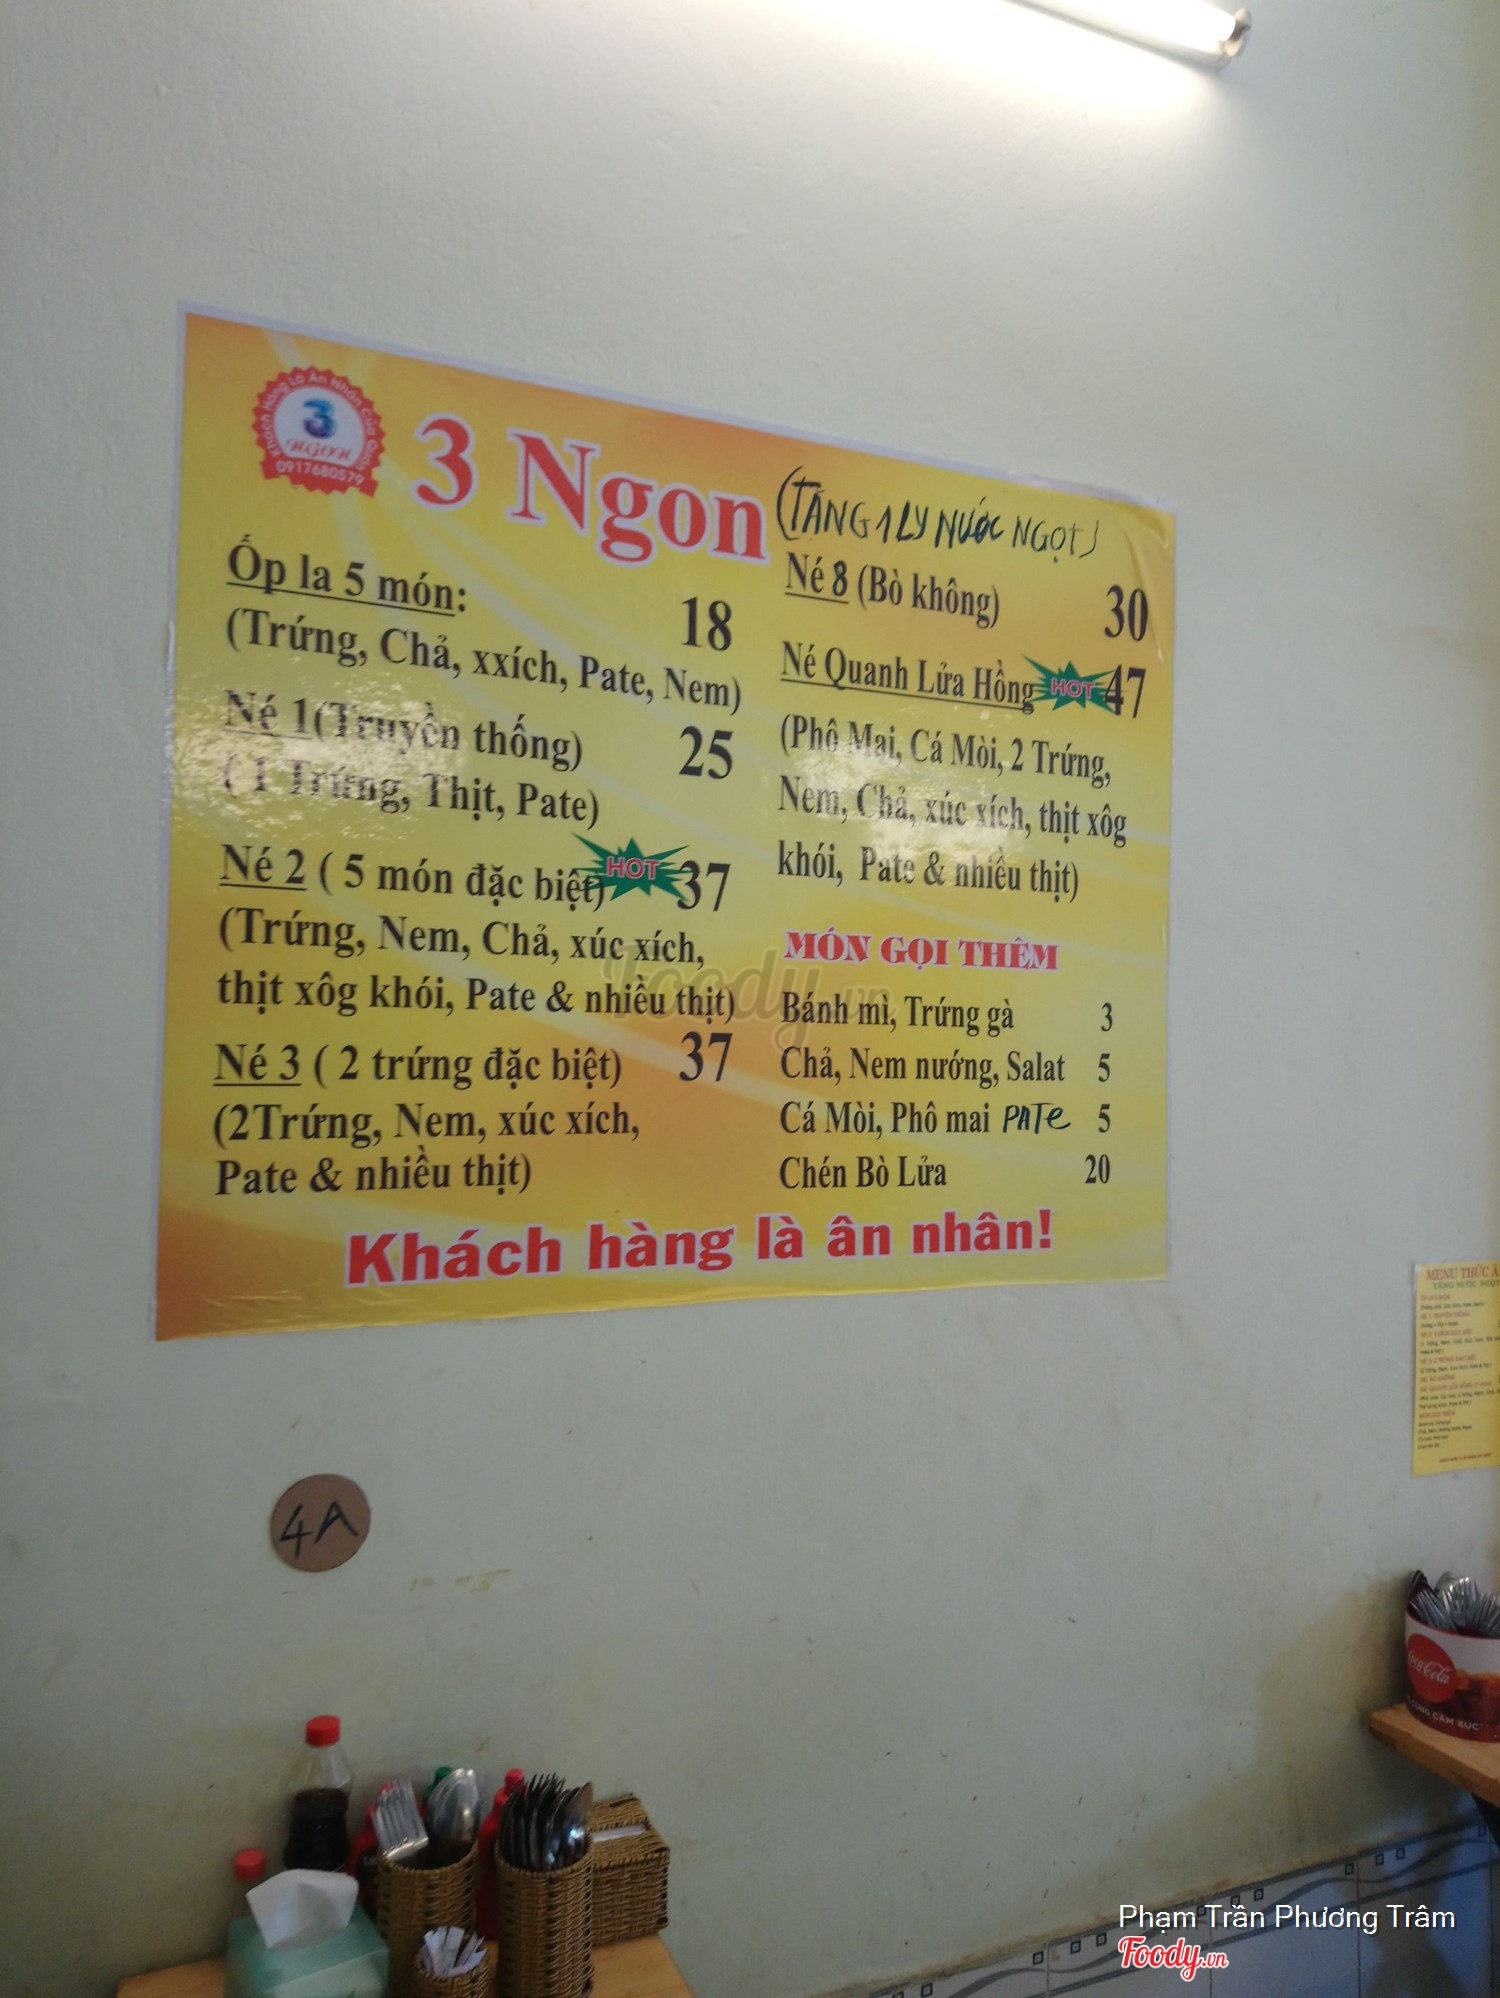 Khách Hàng Là Ân Nhân Của Quán
3
NGON
0917680579
3 Ngon
(TẶNG 1 LY NƯỚC NGỌT)
Ốp la 5 món: 18
(Trứng, Chả, xxích, Pate, Nem)
Né 1(Truyền thống) 25
( 1 Trứng, Thịt, Pate)
Né 2 ( 5 món đặc biệt) HOT 37
(Trứng, Nem, Chả, xúc xích,
thịt xôg khói, Pate & nhiều thịt)
Né 3 ( 2 trứng đặc biệt) 37
(2Trứng, Nem, xúc xích,
Pate & nhiều thịt)
Né 8 (Bò không) 30
Né Quanh Lửa Hồng HOT 47
(Phô Mai, Cá Mòi, 2 Trứng,
Nem, Chả, xúc xích, thịt xôg
khói, Pate & nhiều thịt)
MÓN GỌI THÊM
Bánh mì, Trứng gà 3
Chả, Nem nướng, Salat 5
Cá Mòi, Phô mai PATE 5
Chén Bò Lửa 20
Khách hàng là ân nhân!
Foody.vn
MENU THỨC Ă
4A
Coca-Cola
CẢM XÚC
Phạm Trần Phương Trâm
Foody.vn